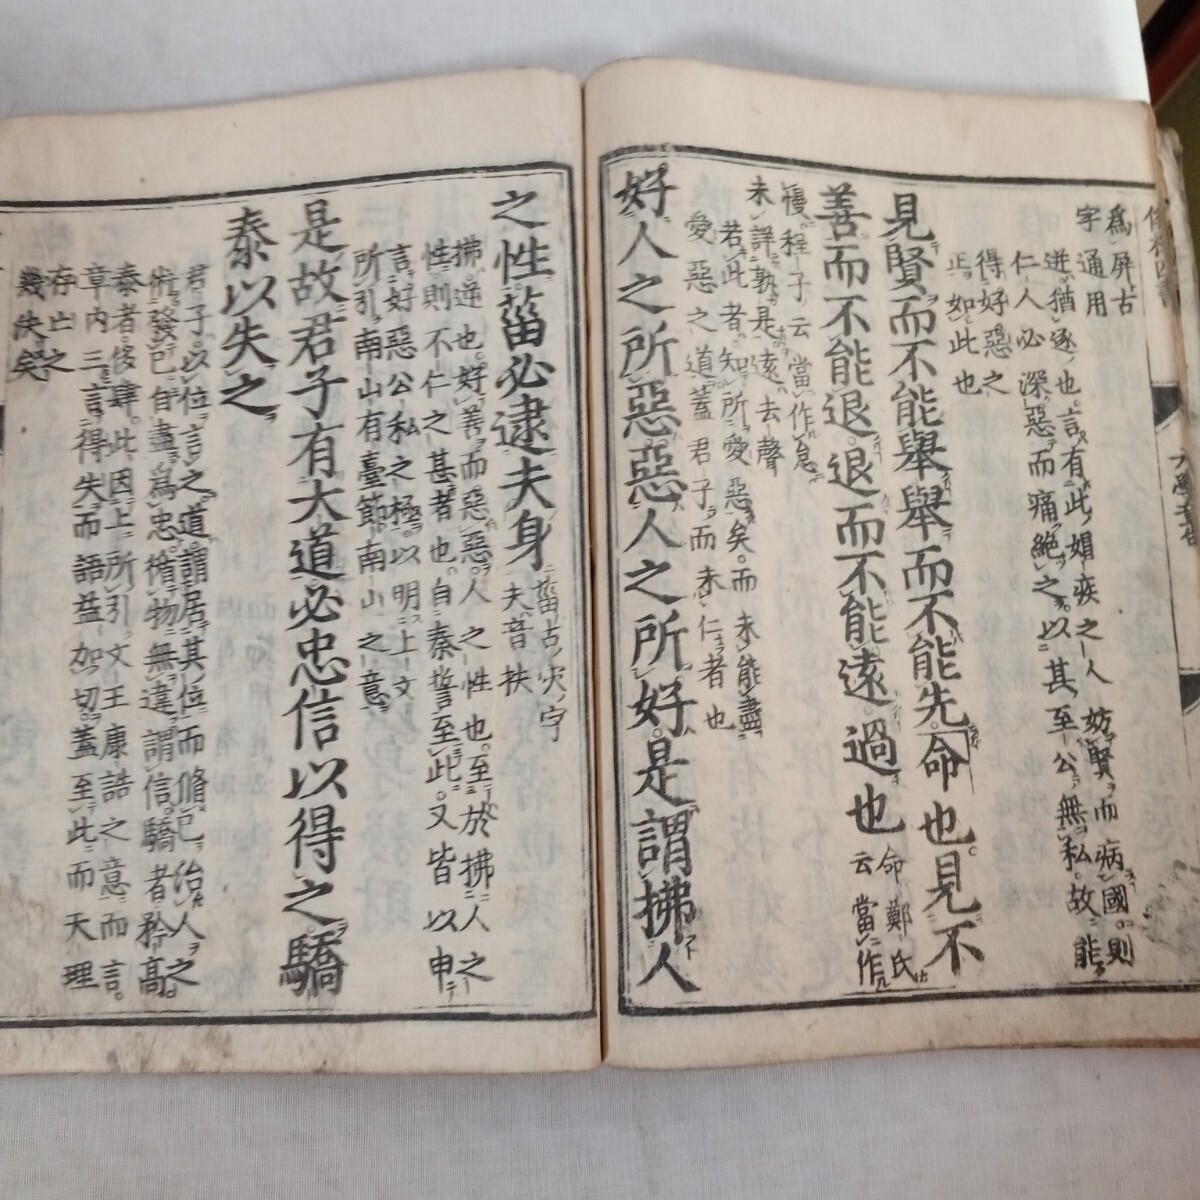 爲屏古
字通用
迸猶逐也言有此媢疾之人妨賢而病國則
仁人必深惡而痛絶之以其至公無私故能
得好惡之
正如此也
見賢而不能舉舉而不能先命也見不
善而不能退退而不能遠過也
命鄭氏
云當作
慢程子云當作怠
未詳孰是遠去聲
若此者知所愛惡矣而未能盡
愛惡之道蓋君子而未仁者也
好人之所惡惡人之所好是謂拂人
之性菑必逮夫身
菑古灾字
夫音扶
拂逆也好善而惡惡人之性也至於拂人之
性則不仁之甚者也自秦誓至此又皆以申
言好惡公私之極以明上文
所引南山有臺節南山之意
是故君子有大道必忠信以得之驕
泰以失之
君子以位言之道謂居其位而脩己治人之
術發己自盡爲忠循物無違謂信驕者矜高
泰者侈肆此因上所引文王康誥之意而言
章内三言得失而語益加切蓋至此而天理
存亡之
幾失矣